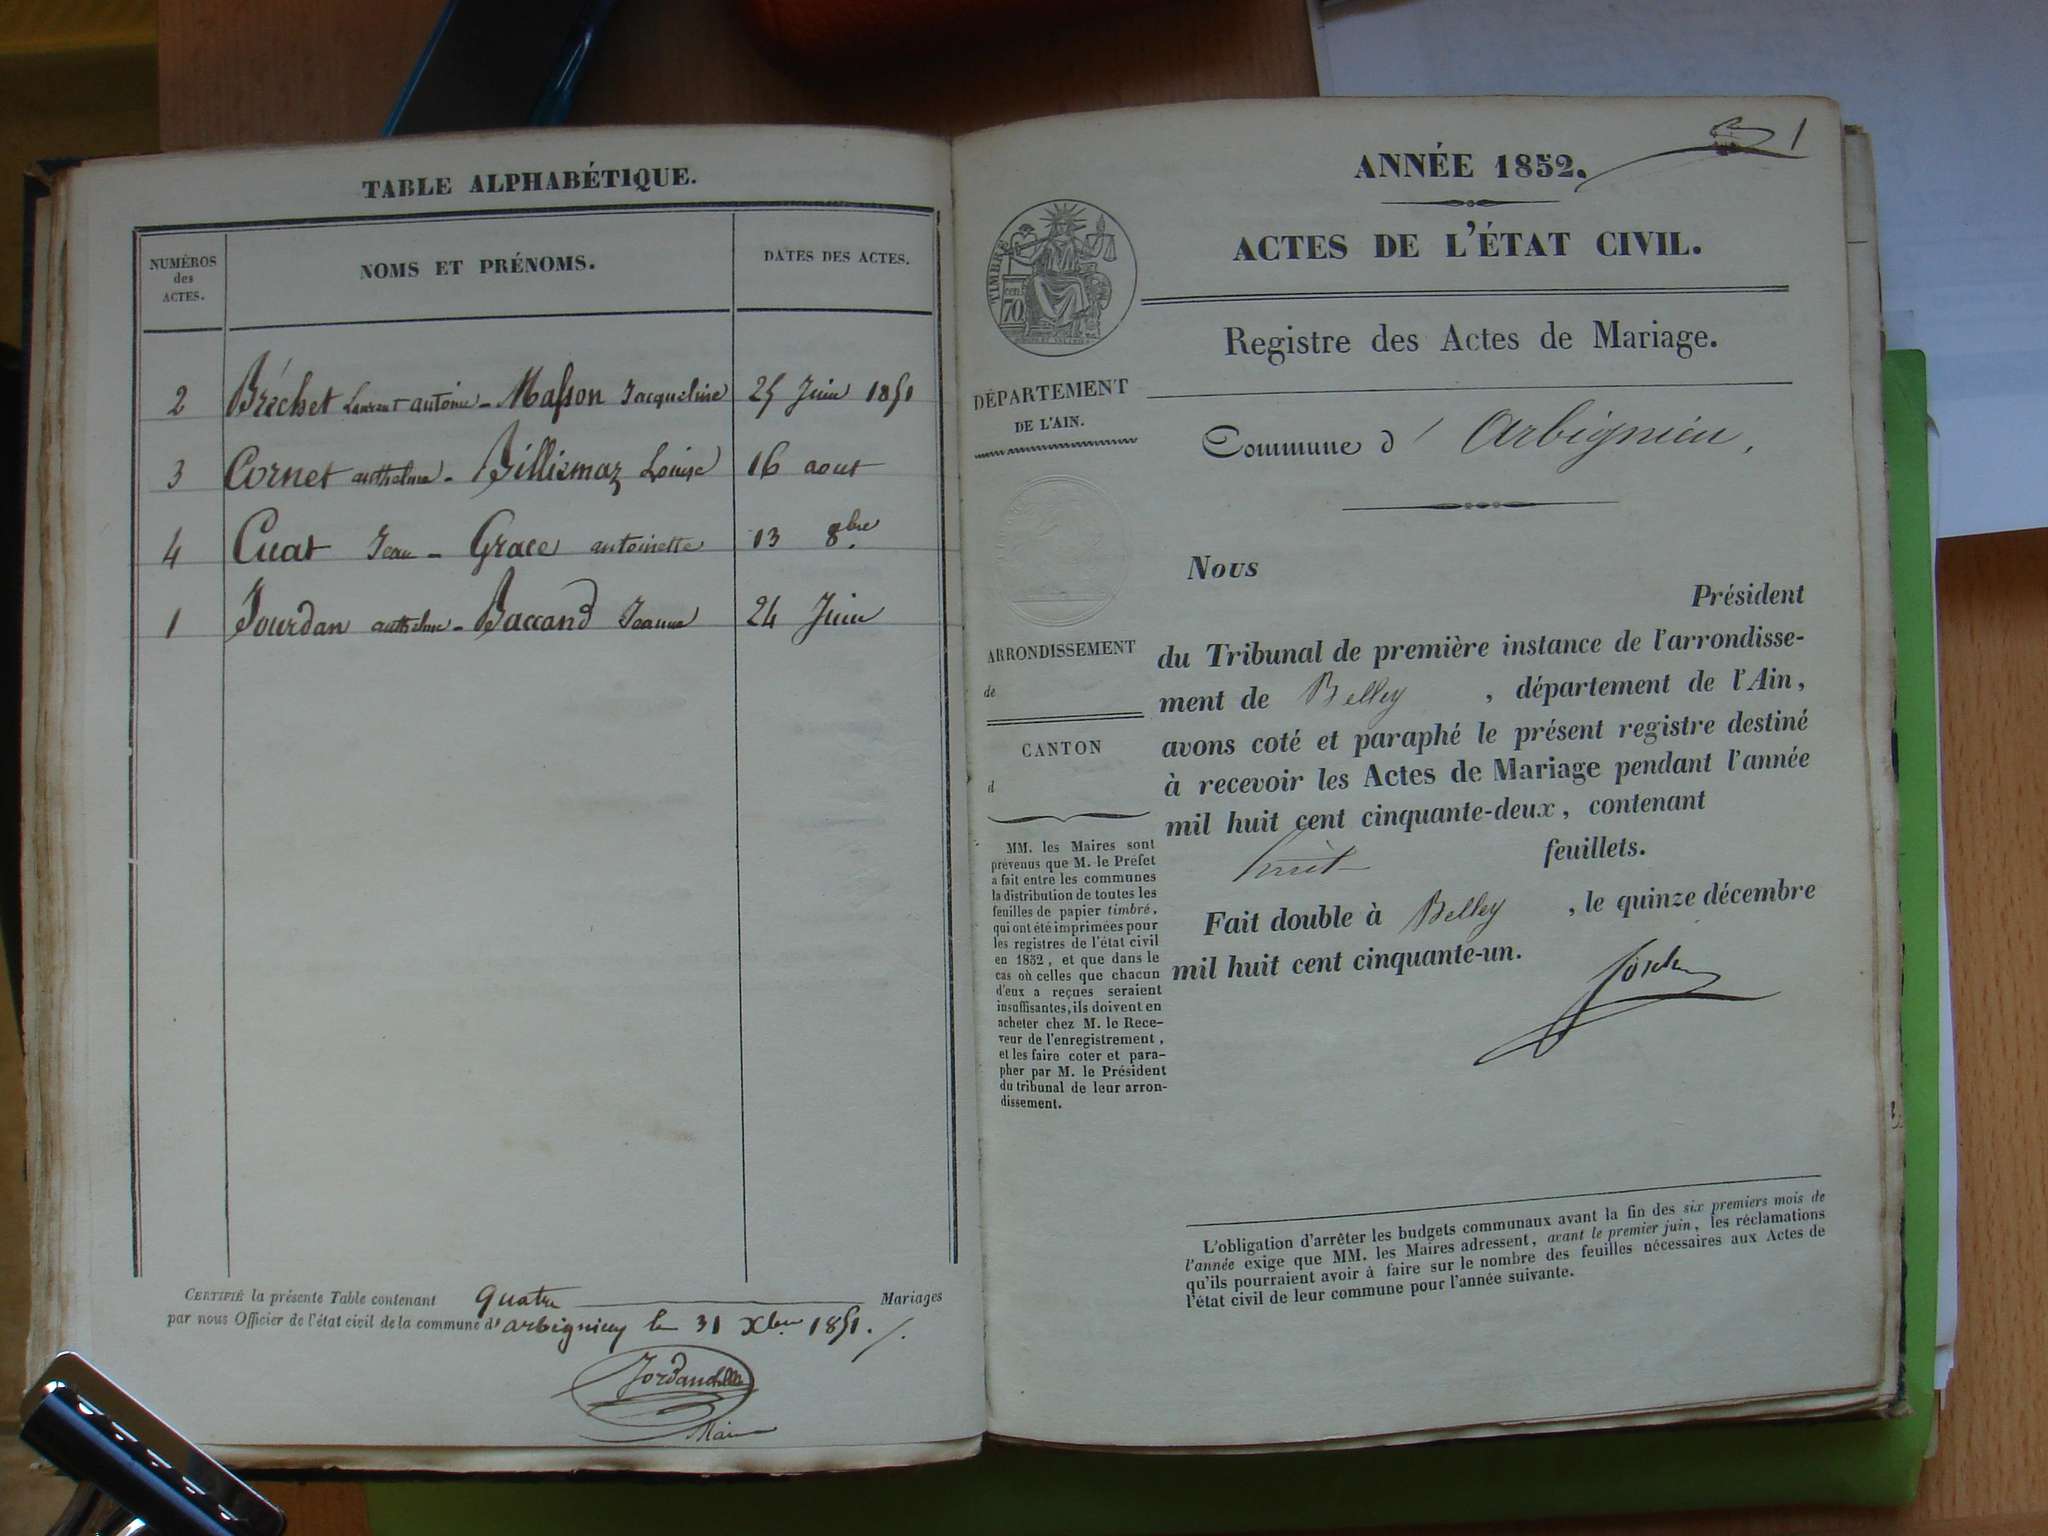 TABLE ALPHABÉTIQUE.
NUMÉROS
des
ACTES.
NOMS ET PRÉNOMS.
DATES DES ACTES.
2 Bréchet Laurent antoine - Masson Jacqueline 25 Juin 1851
3 Cornet anthelme - Billiemaz Louise 16 aout
4 Cuat Jean - Grace antoinette 13 8bre
1 Jourdan anthelme - Baccand Jeanne 24 Juin
CERTIFIÉ la présente Table contenant quatre Mariages
par nous Officier de l'état civil de la commune d'arbignieu le 31 Xbre 1851.
Maire
1
ANNÉE 1852.
ACTES DE L'ÉTAT CIVIL.
TIMBRE
70
Registre des Actes de Mariage.
DÉPARTEMENT
DE L'AIN.
Commune d' Arbignieu,
Nous
Président
du Tribunal de première instance de l'arrondisse-
ment de Belley, département de l'Ain,
avons coté et paraphé le présent registre destiné
à recevoir les Actes de Mariage pendant l'année
mil huit cent cinquante-deux, contenant
huit feuillets.
Fait double à Belley, le quinze décembre
mil huit cent cinquante-un.
ARRONDISSEMENT
de
CANTON
d
MM. les Maires sont
prévenus que M. le Préfet
a fait entre les communes
la distribution de toutes les
feuilles de papier timbré,
qui ont été imprimées pour
les registres de l'état civil
en 1852, et que dans le
cas où celles que chacun
d'eux a reçues seraient
insuffisantes, ils doivent en
acheter chez M. le Rece-
veur de l'enregistrement,
et les faire coter et para-
pher par M. le Président
du tribunal de leur arron-
dissement.
L'obligation d'arrêter les budgets communaux avant la fin des six premiers mois de
l'année exige que MM. les Maires adressent, avant le premier juin, les réclamations
qu'ils pourraient avoir à faire sur le nombre des feuilles nécessaires aux Actes de
l'état civil de leur commune pour l'année suivante.